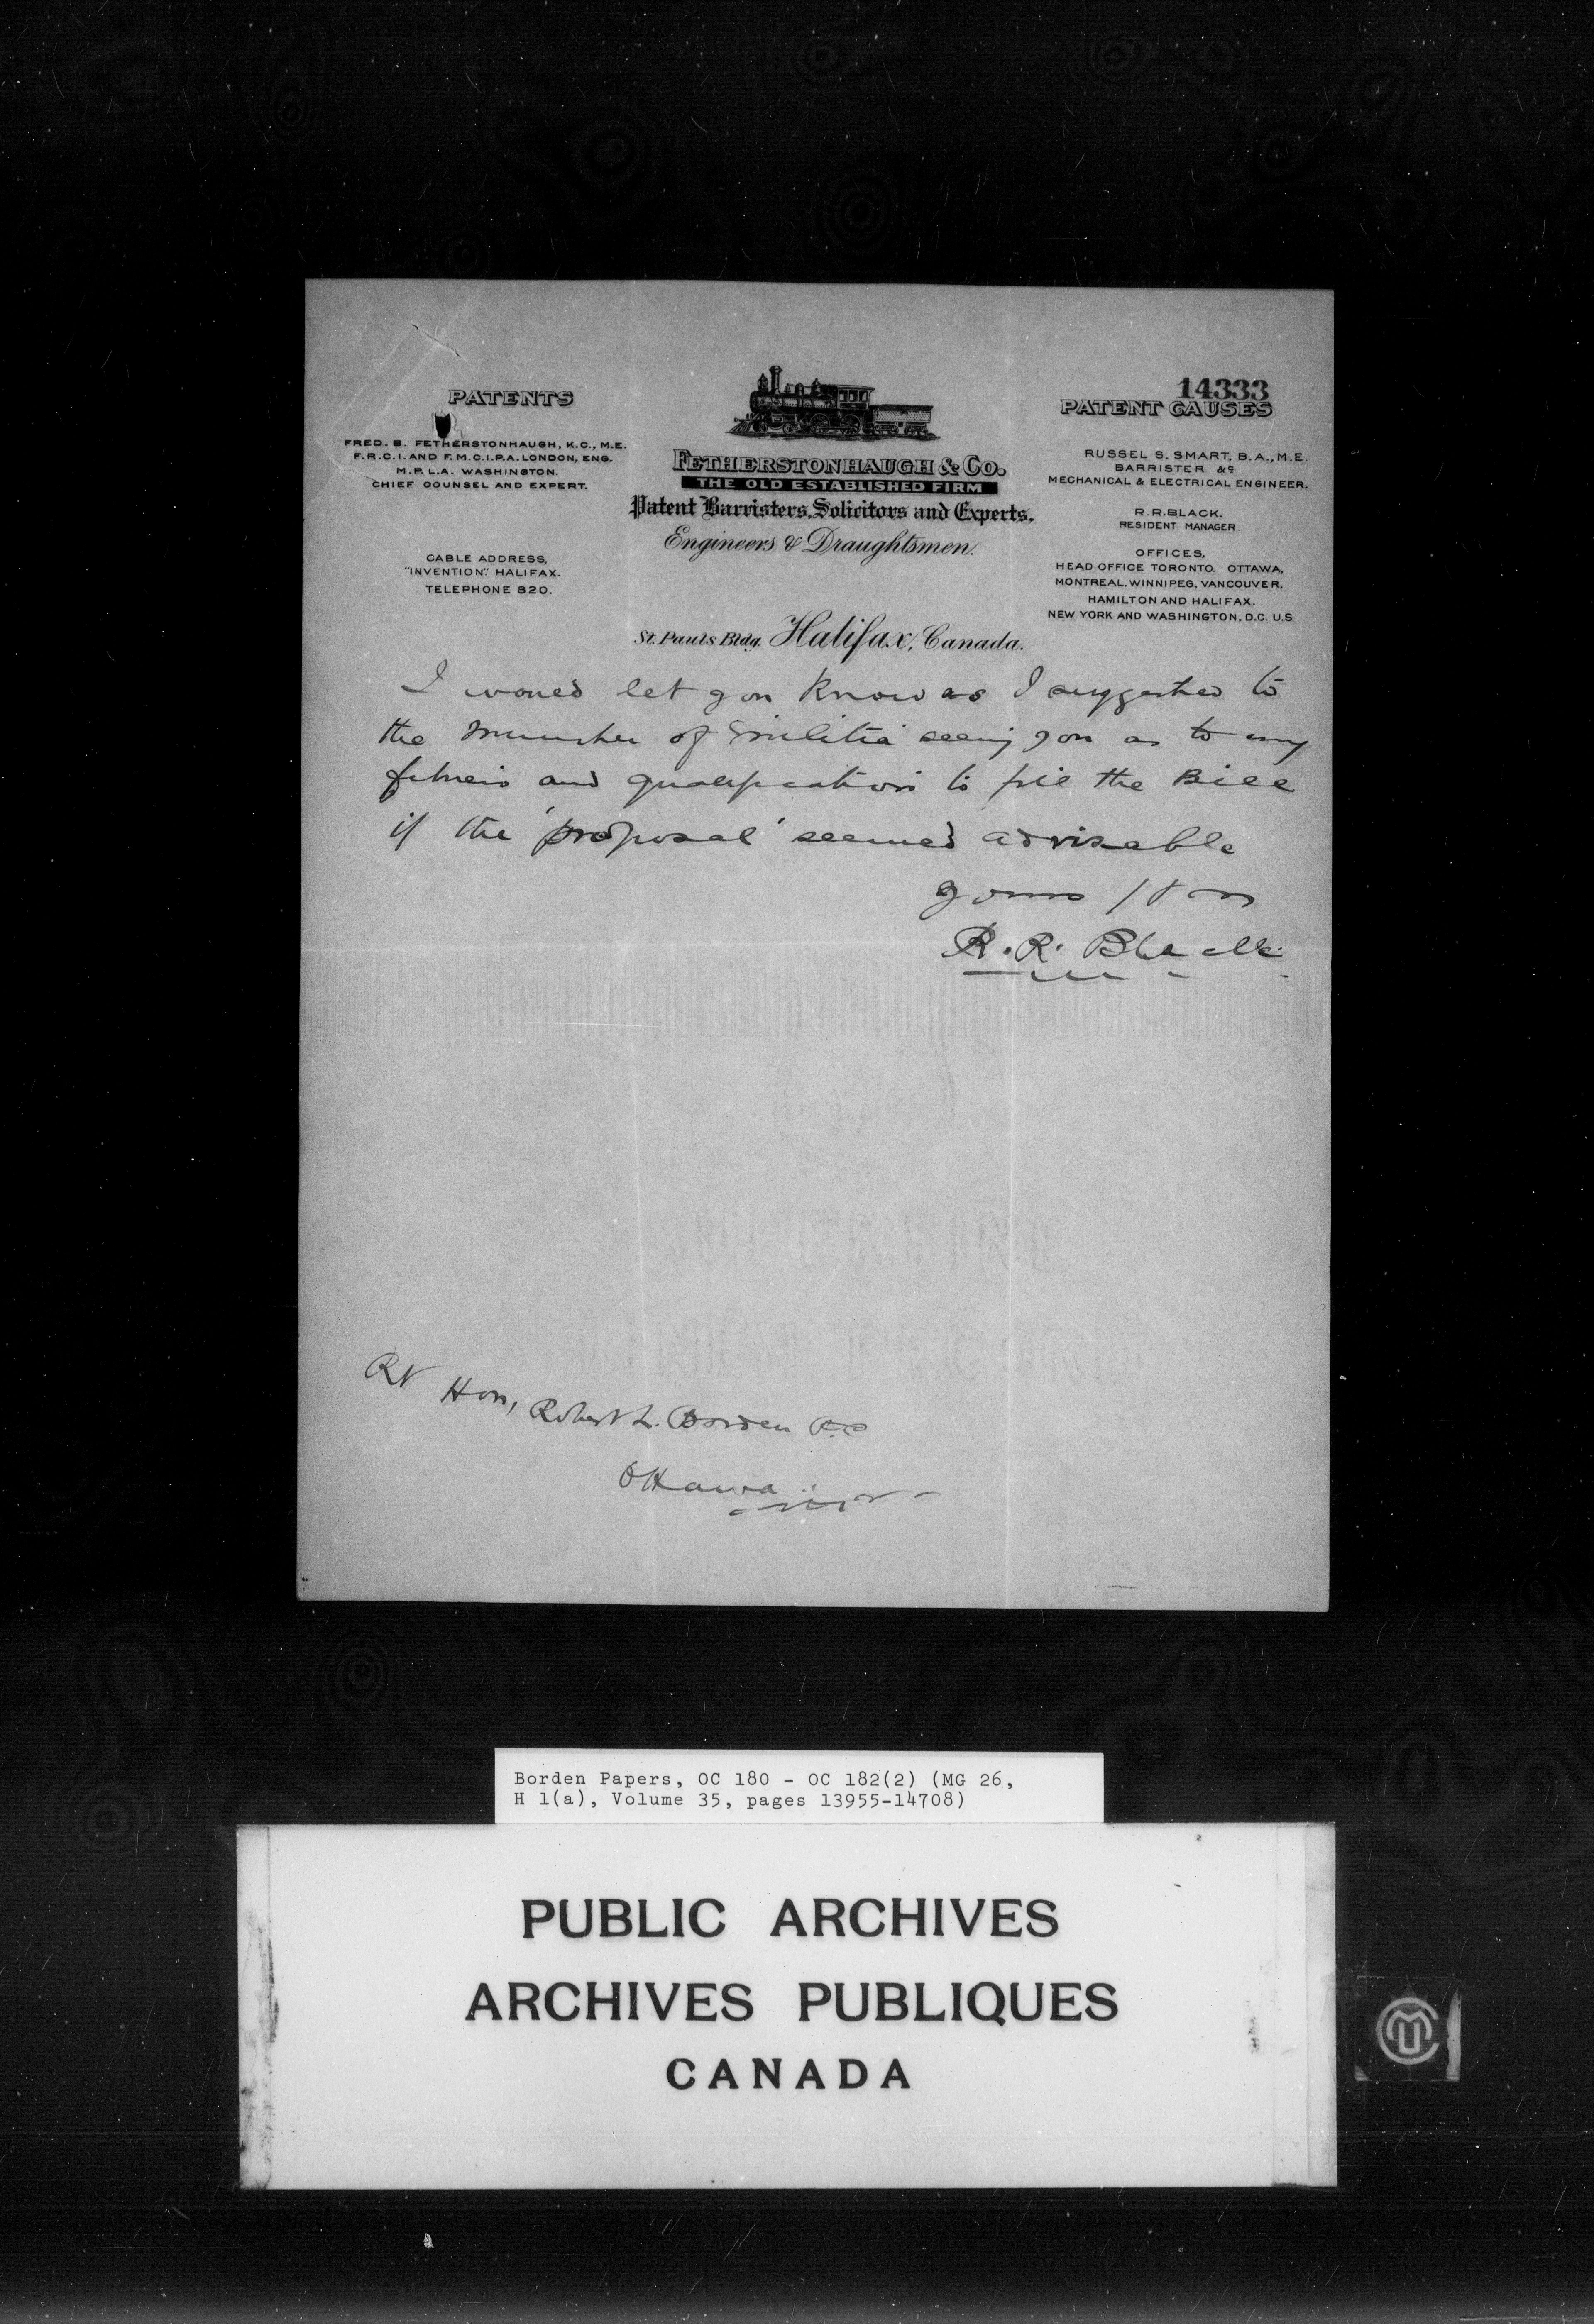 14333
PATENTS
FRED. B. FETHERSTONHAUGH, K.C., M.E.
F.R.C.I. AND F.M.C.I.P.A. LONDON, ENG.
M.P.L.A. WASHINGTON.
CHIEF COUNSEL AND EXPERT.
CABLE ADDRESS,
"INVENTION" HALIFAX.
TELEPHONE 820.
FETHERSTONHAUGH & CO.
THE OLD ESTABLISHED FIRM
Patent Barristers, Solicitors and Experts.
Engineers & Draughtsmen.
PATENT CAUSES
RUSSEL S. SMART, B.A., M.E.
BARRISTER &c
MECHANICAL & ELECTRICAL ENGINEER.
R.R.BLACK.
RESIDENT MANAGER
OFFICES,
HEAD OFFICE TORONTO. OTTAWA,
MONTREAL, WINNIPEG, VANCOUVER,
HAMILTON AND HALIFAX.
NEW YORK AND WASHINGTON, D.C. U.S.
St. Pauls Bldg. Halifax, Canada.
I would let you know as I suggested to
the Minister of Militia seeing you as to my
fitness and qualification to fill the Bill
if the 'proposal' seemed advisable
yours
R. R. Black
Rt Hon, Robert L. Borden P.C
Ottawa
Borden Papers, OC 180 - OC 182(2) (MG 26,
H 1(a), Volume 35, pages 13955-14708)
PUBLIC ARCHIVES
ARCHIVES PUBLIQUES
CANADA